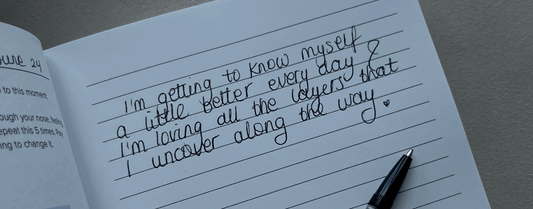 24
to this moment.
ough your nose, feeling
epeat this 5 times. Pay
ing to change it.
I'm getting to know myself
a little better every day &
I'm loving all the layers that
I uncover along the way.